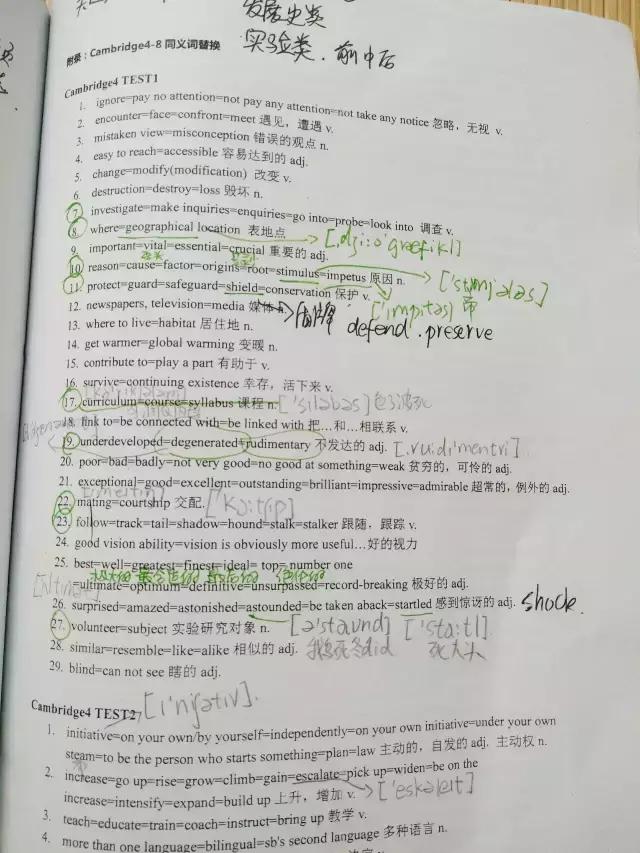 发展史类
实验类. 前中后
附录：Cambridge4-8 同义词替换
Cambridge4 TEST1
1. ignore=pay no attention=not pay any attention=not take any notice 忽略，无视 v.
2. encounter=face=confront=meet 遇见，遭遇 v.
3. mistaken view=misconception 错误的观点 n.
4. easy to reach=accessible 容易达到的 adj.
5. change=modify(modification) 改变 v.
6. destruction=destroy=loss 毁坏 n.
7. investigate=make inquiries=enquiries=go into=probe=look into 调查 v.
8. where=geographical location 表地点
[,dʒi:ə'græfikl]
9. important=vital=essential=crucial 重要的 adj.
10. reason=cause=factor=origins=root=stimulus=impetus 原因 n.
['stɪmjələs]
11. protect=guard=safeguard=shield=conservation 保护 v.
['impitəs]
12. newspapers, television=media 媒体 n.
defend. preserve
13. where to live=habitat 居住地 n.
14. get warmer=global warming 变暖 n.
15. contribute to=play a part 有助于 v.
16. survive=continuing existence 幸存，活下来 v.
17. curriculum=course=syllabus 课程 n.
['siləbəs]
18. link to=be connected with=be linked with 把…和…相联系 v.
19. underdeveloped=degenerated=rudimentary 不发达的 adj.
[.ru:di'mentri]
20. poor=bad=badly=not very good=no good at something=weak 贫穷的，可怜的 adj.
21. exceptional=good=excellent=outstanding=brilliant=impressive=admirable 超常的，例外的 adj.
22. mating=courtship 交配.
['kɔ:tʃip]
23. follow=track=tail=shadow=hound=stalk=stalker 跟随，跟踪 v.
24. good vision ability=vision is obviously more useful…好的视力
25. best=well=greatest=finest=ideal= top= number one
=ultimate=optimum=definitive=unsurpassed=record-breaking 极好的 adj.
26. surprised=amazed=astonished=astounded=be taken aback=startled 感到惊讶的 adj.
shock.
27. volunteer=subject 实验研究对象 n.
[ə'staund] ['sta:tl]
28. similar=resemble=like=alike 相似的 adj.
29. blind=can not see 瞎的 adj.
Cambridge4 TEST2
[ɪ'nɪʃətɪv].
1. initiative=on your own/by yourself=independently=on your own initiative=under your own
steam=to be the person who starts something=plan=law 主动的，自发的 adj. 主动权 n.
2. increase=go up=rise=grow=climb=gain=escalate=pick up=widen=be on the
increase=intensify=expand=build up 上升，增加 v.
['eskəleit]
3. teach=educate=train=coach=instruct=bring up 教学 v.
4. more than one language=bilingual=sb's second language 多种语言 n.